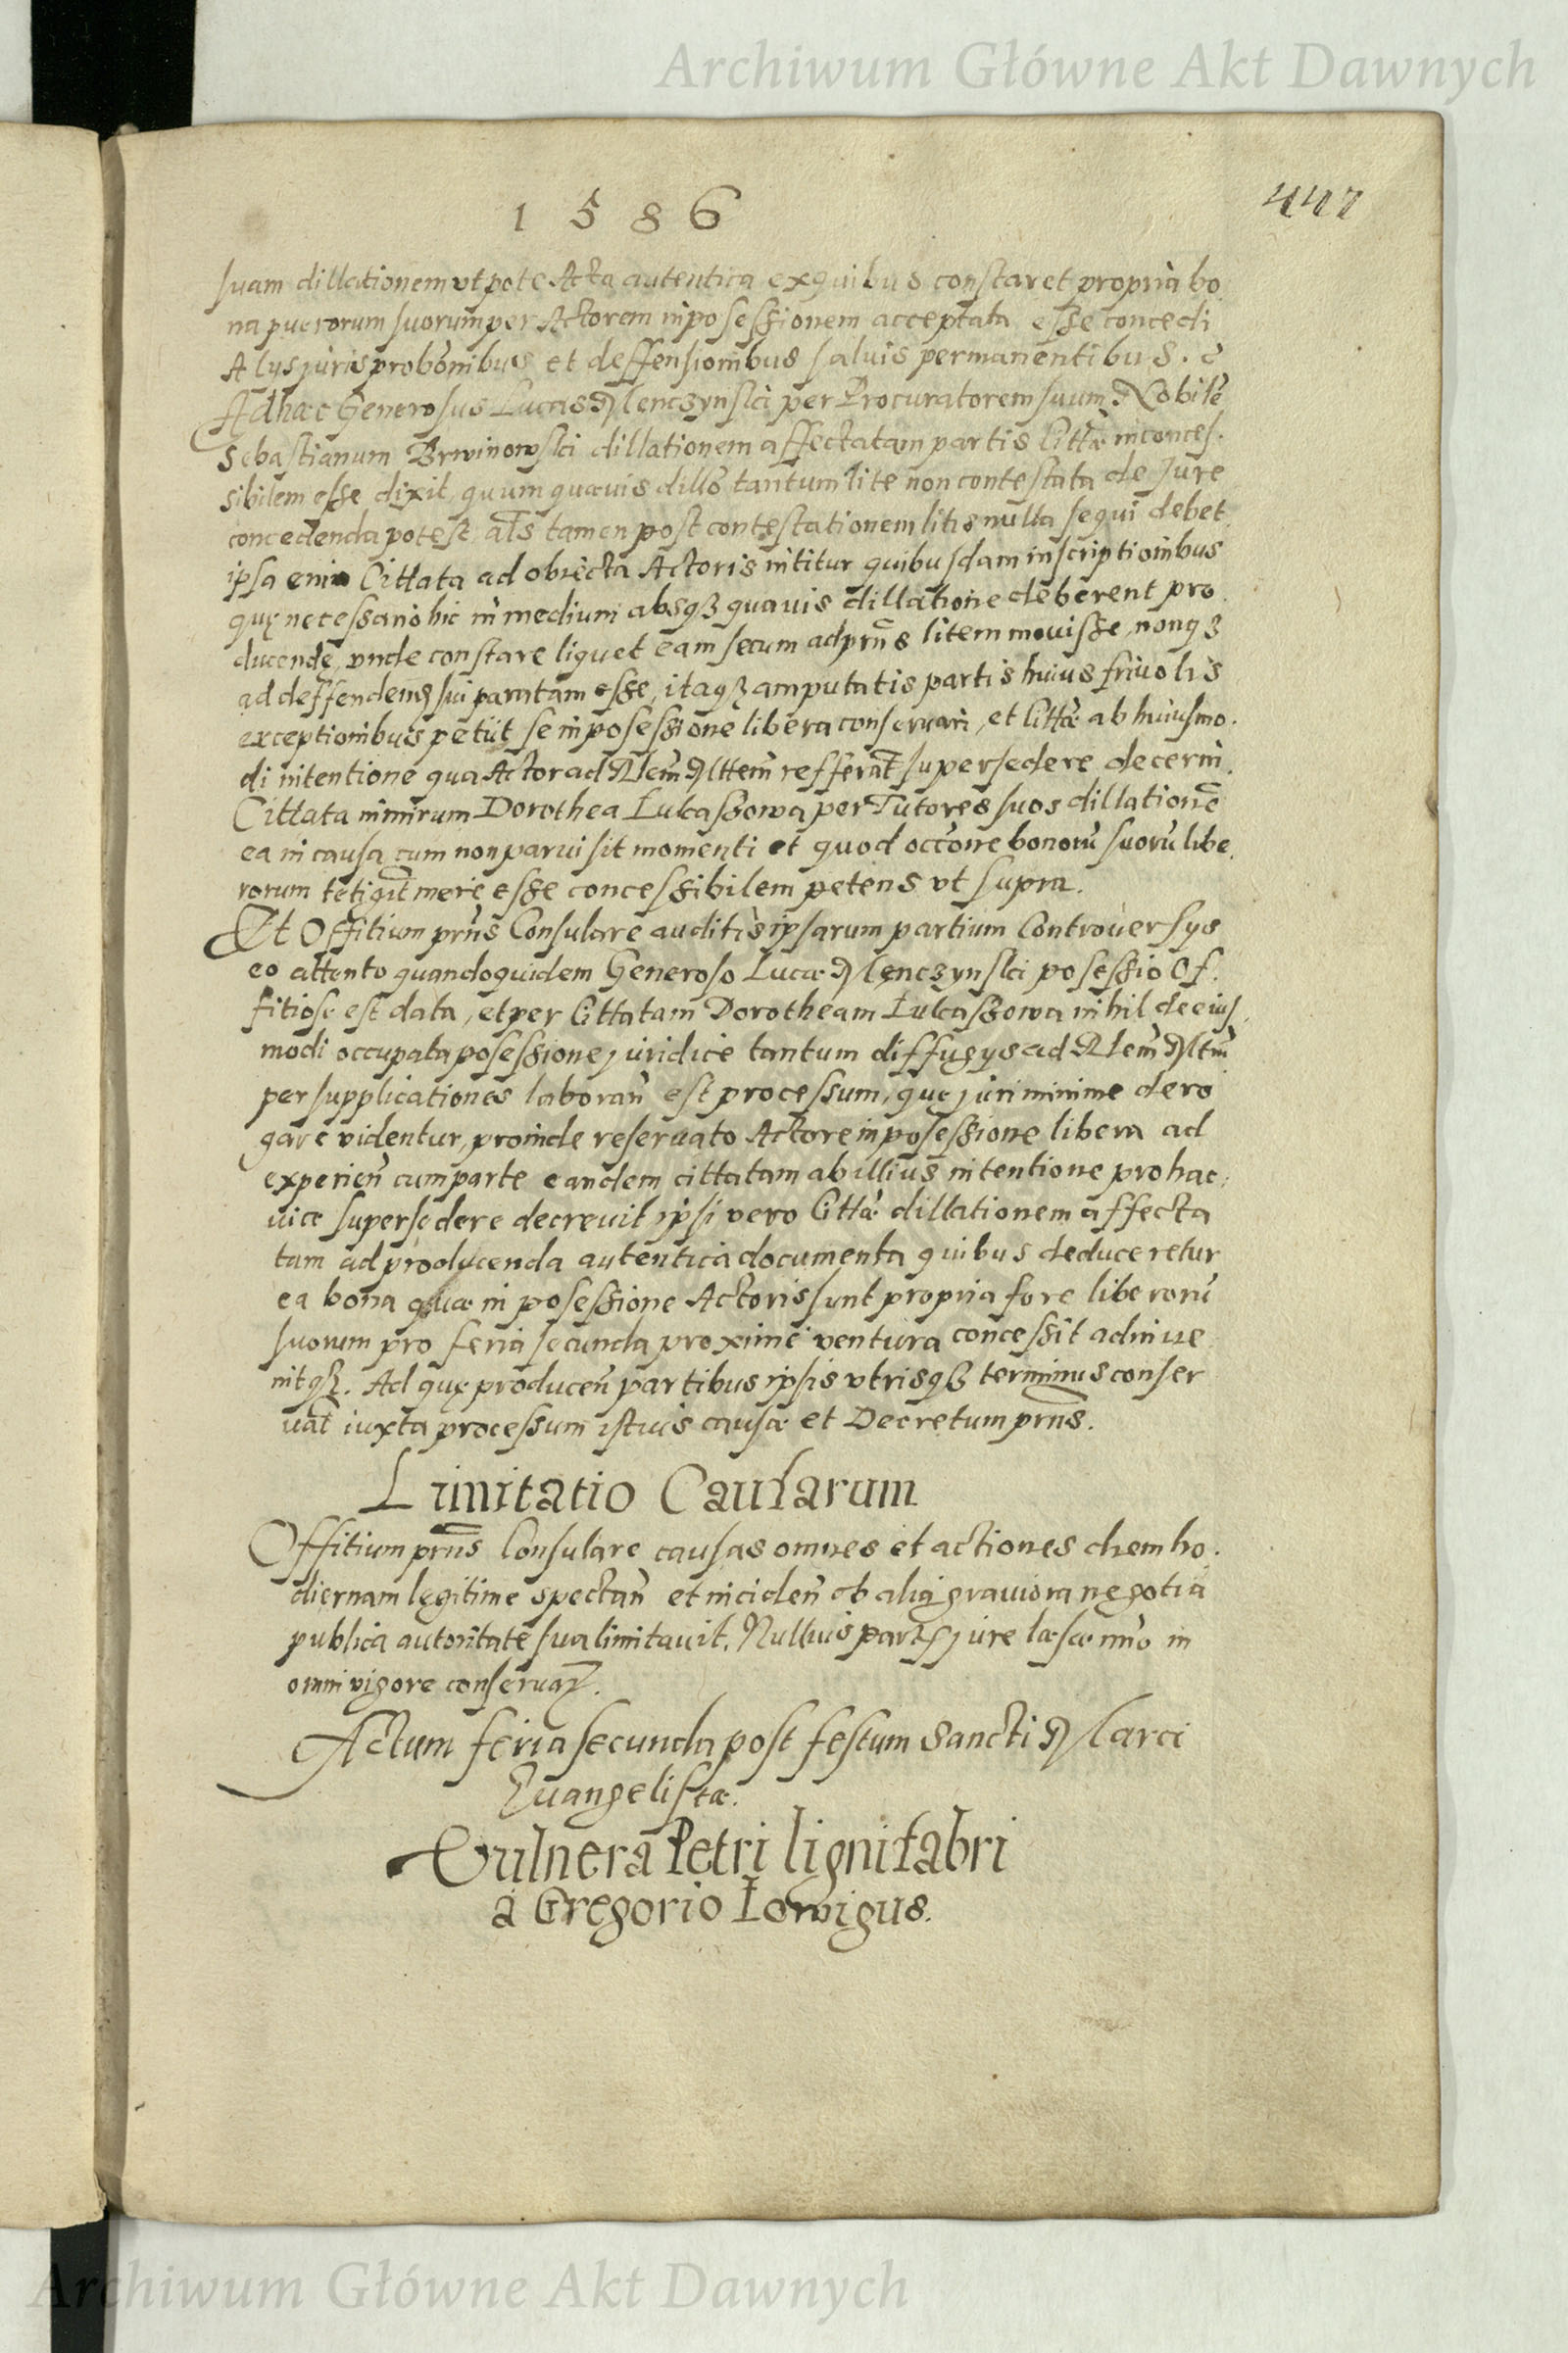 Archiwum Główne Akt Dawnych
1586
447
suam dillationem utpote Acta autentica ex quibus constaret propria bo
na puerorum suorum per Actorem in posessionem acceptata esse concedi
Alys juris probõnibus et deffensionibus salvis permanentibus.
Ad hæc Generosus Lucas Mlenczynski per Procuratorem suum Nobilẽ
Sebastianum Brwinowski dillationem affectatam partis Cittæ inconces.
sibilem esse dixit, quum quævis dillõ tantum lite non contestata de Jure
concedenda potest, als tamen post contestationem litis nulla sequi debet
ipsa enim Cittata ad obiecta Actoris nititur quibusdam inscriptionibus
quę necessario hic in medium absqʒ quavis dillatione deberent pro.
ducende, unde constare liquet eam secum ad prñs litem movisse, nonqʒ
ad deffendend sui paratam esse, itaqʒ amputatis partis huius frivolis
exceptionibus petiit se in posessione libera conservari, et Cittã ab huiusmo.
di intentione qua Actor ad Rlem Mttem refferat supersedere decerni.
Cittata nimirum Dorothea Łukaszowa per Tutores suos dillationẽ
ea in causa cum non parvi sit momenti et quod occõne bonorũ suorũ libe.
rorum tetigit mere esse concessibilem petens ut supra.
Et Offitium prñs Consulare auditis ipsarum partium Controversys
eo attento quandoquidem Generoso Lucæ Mlenczynski posessio Of.
fitiose est data, et per Cittatam Dorotheam Łukaszowa nihil de eius
modi occupata posessione juridice tantum diffugys ad Rlem Mttm
per supplicationes laboran est processum, quę juri minime dero
gare videntur, proinde reservato Actore in posessione libera ad
experien cum parte eandem cittatam ab illius intentione pro hac
vice supersedere decrevit ipsi vero Cittæ dillationem affecta
tam ad producenda autentica documenta quibus deduceretur
ea bona quæ in posessione Actoris sunt propria fore liberorũ
suorum pro feria secunda proxime ventura concessit adinve
nitqʒ. Ad quę producen partibus ipsis utrisqʒ terminus conser
vat iuxta processum istius causæ et Decretum prñs.
Limitatio Causarum
Offitium prñs Consulare causas omnes et actiones diem ho.
diernam legitime spectan et inciden ob alia graviora negotia
publica autoritate sua limitavit. Nullius partis jure læsæ imo in
omni vigore conservaʒ.
Actum feria secunda post festum Sancti Marci
Evangelistæ.
Vulnera Petri lignifabri
a Gregorio Łowigus.
Archiwum Główne Akt Dawnych